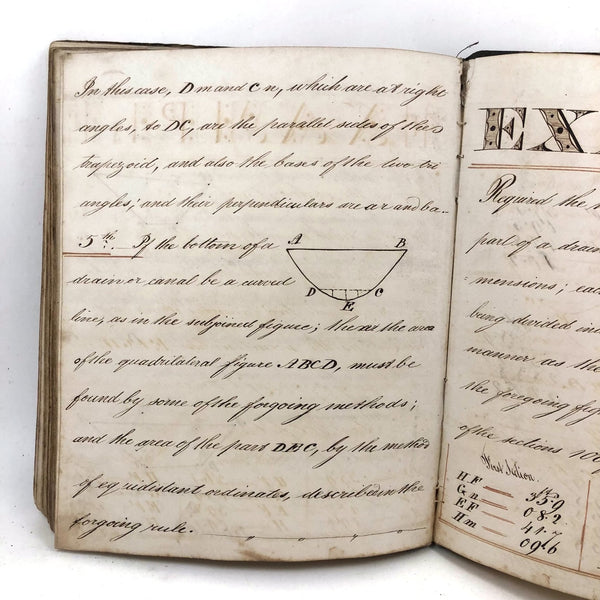 In this case, Dm and Cn, which are at right
angles, to DC, are the parallel sides of the
trapezoid, and also the bases of the two tri
angles; and their perpendiculars are ar and ba.
5th. If the bottom of a
drain or canal be a curved
A B
D C
E
line, as in the subjoined figure; the area
of the quadrilateral figure ABCD, must be
found by some of the forgoing methods;
and the area of the part DEC, by the method
of equidistant ordinates, described in the
forgoing rule.
EX
Required the
part of a drain
mensions; eac
being divided in
manner as the
the foregoing fig
of the sections 10
First Section
HF 35.9
Gn 08.2
EF 41.7
Hm 09.6